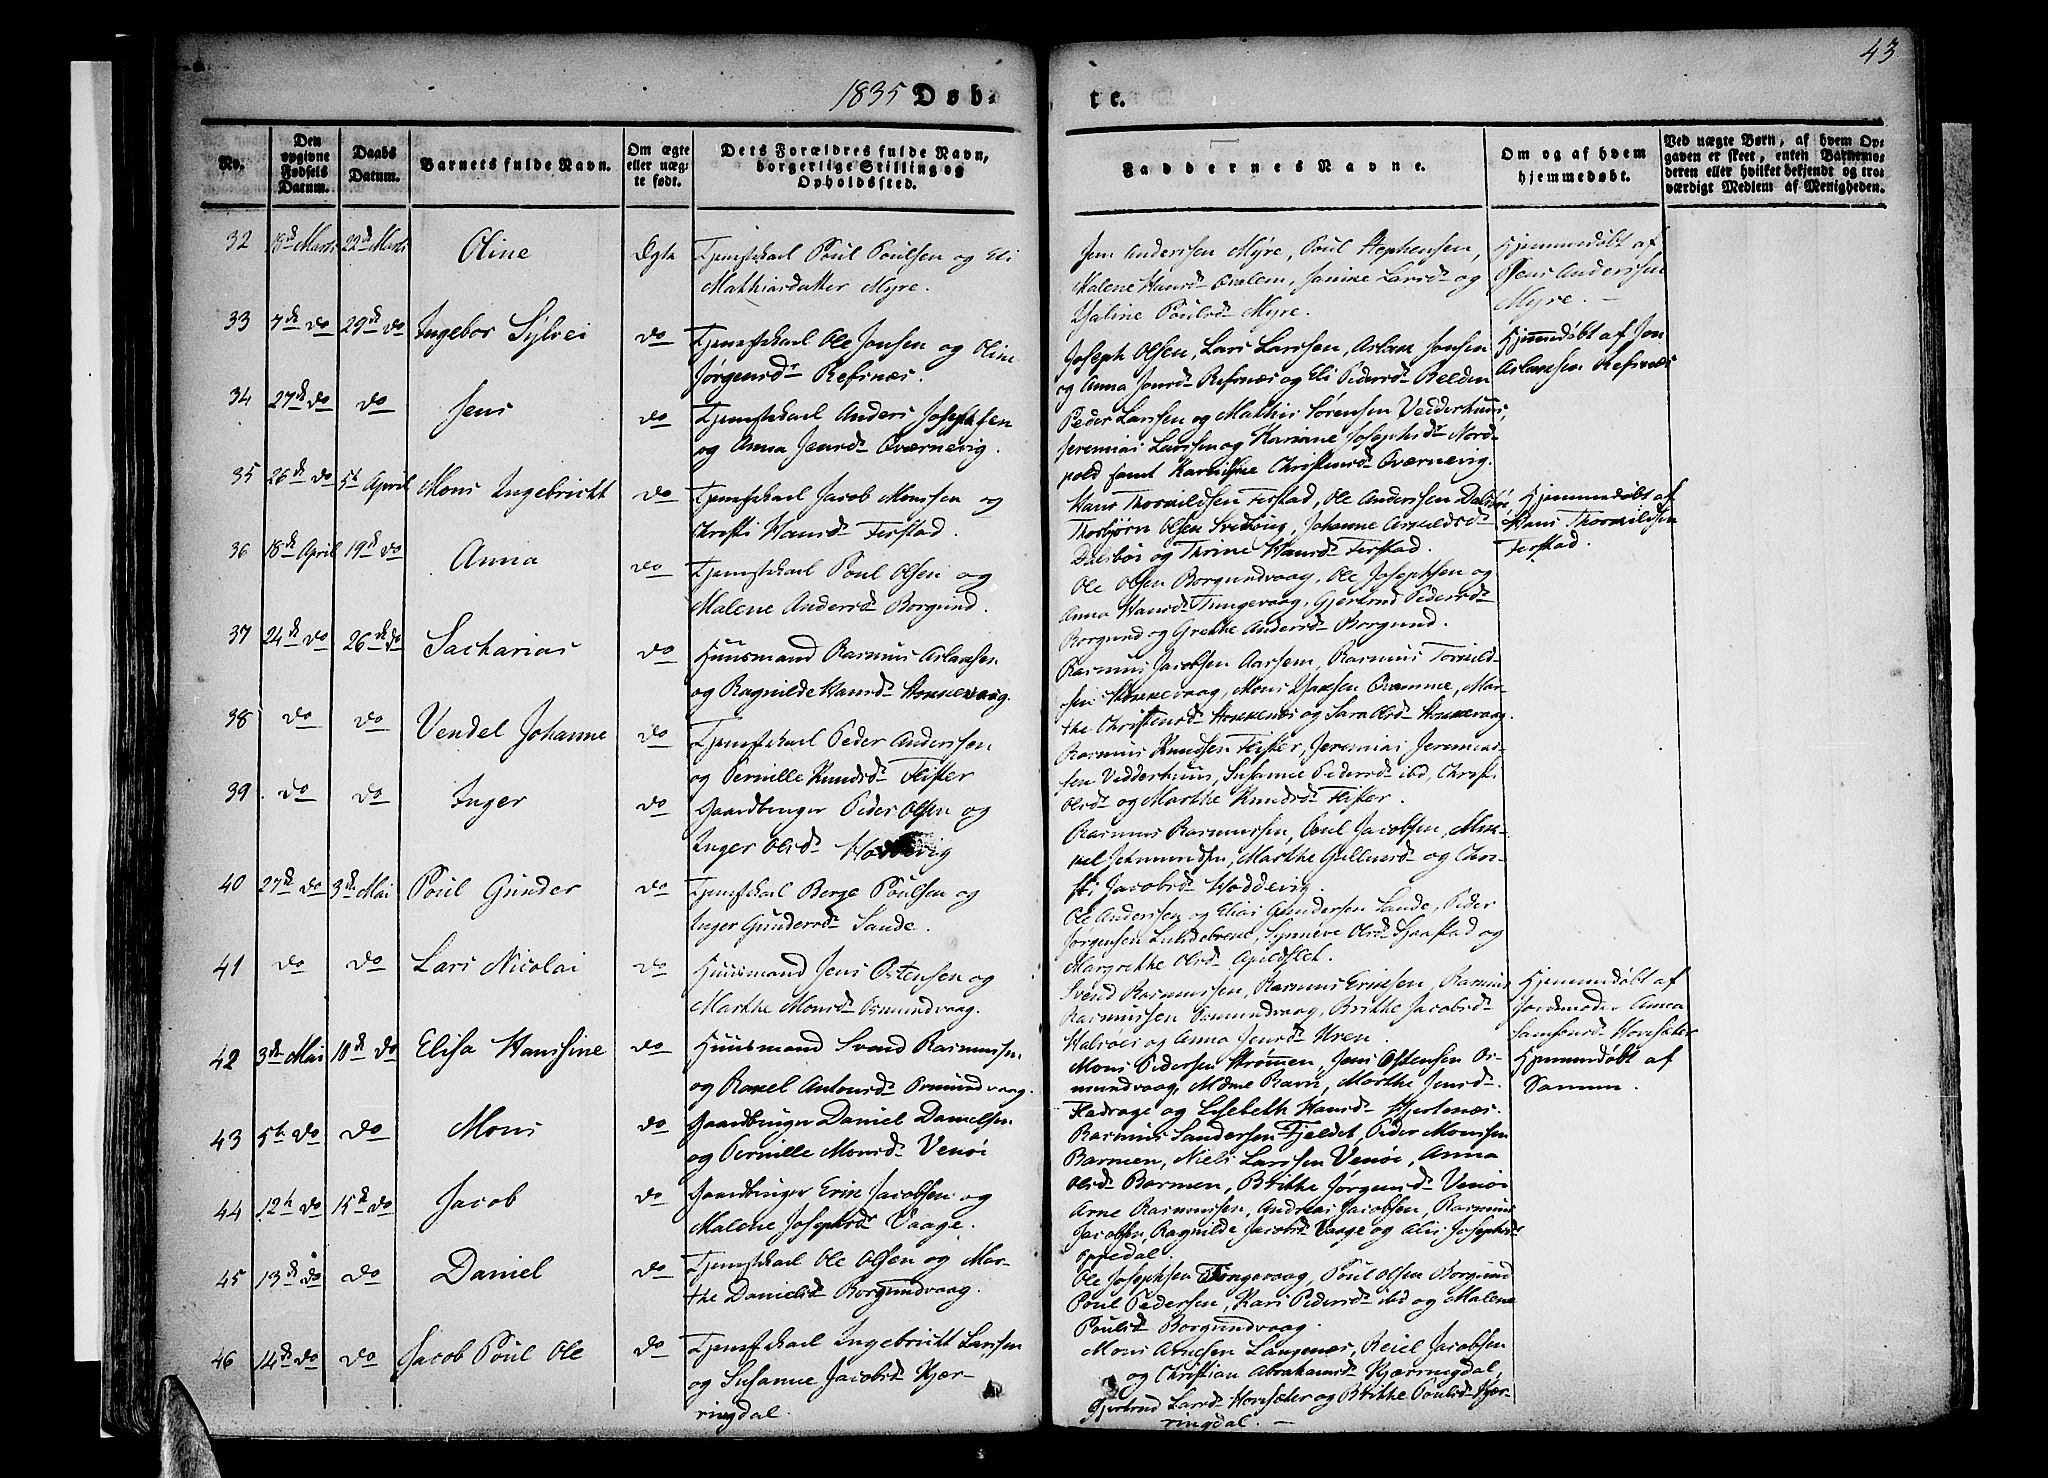 43
1835 Døb-
te.
No.
Den opgivne Fødsels Datum.
Daabs Datum.
Barnets fulde Navn.
Om ægte eller uægte født.
Dets Forældres fulde Navn, borgerlige Stilling og Opholdssted.
Faddernes Navne.
Om og af hvem hjemmedøbt.
Ved uægte Børn, af hvem Opgaven er skeet, enten Barnemoderen eller hvilket bekjendt og troværdigt Medlem af Menigheden.
32 18de Marts 22de Marts Oline Ægte
Tjenestekarl Poul Poulsen og Eli
Mathiasdatter Myre.
Jens Anderssen Myre, Poul Stephensen,
Malene Hansd. Janine Larsd. og
Poulsd. Myre.
Hjemmedøbt af
Jens Anderssen
Myre.
33 7de do 29de do Ingebor Sylvei do
Tjenestekarl Ole Jonsen og Oline
Jørgensd. Refsnæs.
Joseph Olsen, Lars Larssen, Aslak Jonsen
og Anna Jonsd. Refsnæs og Eli Pedersd. Belden
Hjemmedøbt af Jon
Aslaksen Refsnæs
34 27de do do Jens do
Tjenestekarl Anders Josephsen
og Anna Jensd. Qværnevig.
Peder Larssen og Mathis Sørensen Vedderhuus,
Jeremias Larssen og Karine Josephsd. Nord-
pold samt Karistine Christensd. Qværnevig.
35 26de do 5te April Mons Ingebrictt do
Tjenestekarl Jacob Monssen og
Christi Hansd. Ferstad.
Hans Thormildsen Ferstad, Ole Anderssen Dalsbøe,
Thorbjørn Olsen Johanne
Dalsbøe og Thrine Hansd. Ferstad.
Hjemmedøbt af
Hans Thormildsen
Ferstad.
36 18de April 19de do Anna do
Tjenestekarl Poul Olsen og
Malene Andersd. Borgund.
Ole Olsen Borgundvaag, Ole Josephsen og
Anna Hansd. Tungevaag, Gjertrud Pedersd.
Borgund og Grethe Andersd. Borgund.
37 24de do 26de do Sacharias do
Huusmand Rasmus Aslaksen
og Ragnilde Hansd. Hokkevaag.
Rasmus Jacobsen Aarsem, Rasmus Tormild-
sen Hokkevaag, Mons Isaksen Qvamme, Mar-
the Christensd. Hokkenæs og Sara Olsd. Hokkevaag.
38 do do Vendel Johanne do
Tjenestekarl Peder Anderssen
og Pernille Knudsd. Flister
Rasmus Knudsen Flister, Jeremias Jeremias-
sen Vedderhuus, Susanne Pedersd. ibd, Christi
Olsd. og Marthe Knudsd. Flister.
39 do do Inger do
Gaardbruger Peder Olsen og
Inger Olsd. Hoddevig
Rasmus Rasmussen, Poul Jacobsen, Mik-
kel Jehmundsen, Marthe Gullaksd. og Chri-
sti Jacobsd. Hoddevig.
40 27de do 3de Mai Poul Gunder do
Tjenestekarl Børge Poulsen og
Inger Gundersd. Sande.
Ole Anderssen og Elias Gundersen Sande, Peder
Jørgensen Lundebrekke, Synneve Olsd. Sjaastad og
Margrethe Olsd. Apildstet.
41 do do Lars Nicolai do
Huusmand Jens Ostensen og
Marthe Monsd. Osmundvaag.
Svend Rasmussen, Rasmus Eriksen, Rasmus
Rasmussen Osmundvaag, Brithe Jacobsd.
Halsøer og Anna Jensd. Uren.
Hjemmedøbt af
Jordmoder Anna
Samsonsd. Hovesæter
42 3de Mai 10de do Elisa Hanssine do
Huusmand Svend Rasmussen
og Rakel Antonsd. Osmundvaag.
Mons Pedersen Strømen, Jens Ostensen Os-
mundvaag, Mdme Ravn, Marthe Jensd.
Fladrage og Lisebeth Hansd. Hjertenæs.
Hjemmedøbt af
Samme.
43 5te do do Mons do
Gaardbruger Daniel Danielsen
og Pernille Monsd. Venøe
Rasmus Sandersen Fjeldet, Peder Monssen
Barmen, Niels Larssen Venøe, Anna
Olsd. Barmen, Brithe Jørgensd. Venøe
44 12te do 15de do Jacob do
Gaardbruger Erik Jacobsen og
Malene Josephsd. Vaage.
Arne Rasmussen, Andreas Jacobsen, Rasmus
Jacobsen, Ragnilde Jacobsd. Vaage og Alis Josephsd.
Oppedal.
45 13de do do Daniel do
Tjenestekarl Ole Olsen og Mar-
the Danielsd. Borgundvaag.
Ole Josephsen Tungevaag, Poul Olsen Borgund
Poul Pedersen, Kari Pedersd. ibd og Malene
Poulsd. Borgundvaag.
46 14de do do Jacob Poul Ole do
Tjenestekarl Ingebrictt Larssen
og Susanne Jacobsd. Kjær-
ringdal.
Mons Abrahamsen Langenæs, Reiel Jacobsen
og Christian Abrahamsd. Kjærringdal,
Gjertrud Larsd. Hovesæter og Brithe Poulsd. Kjær-
ringdal.